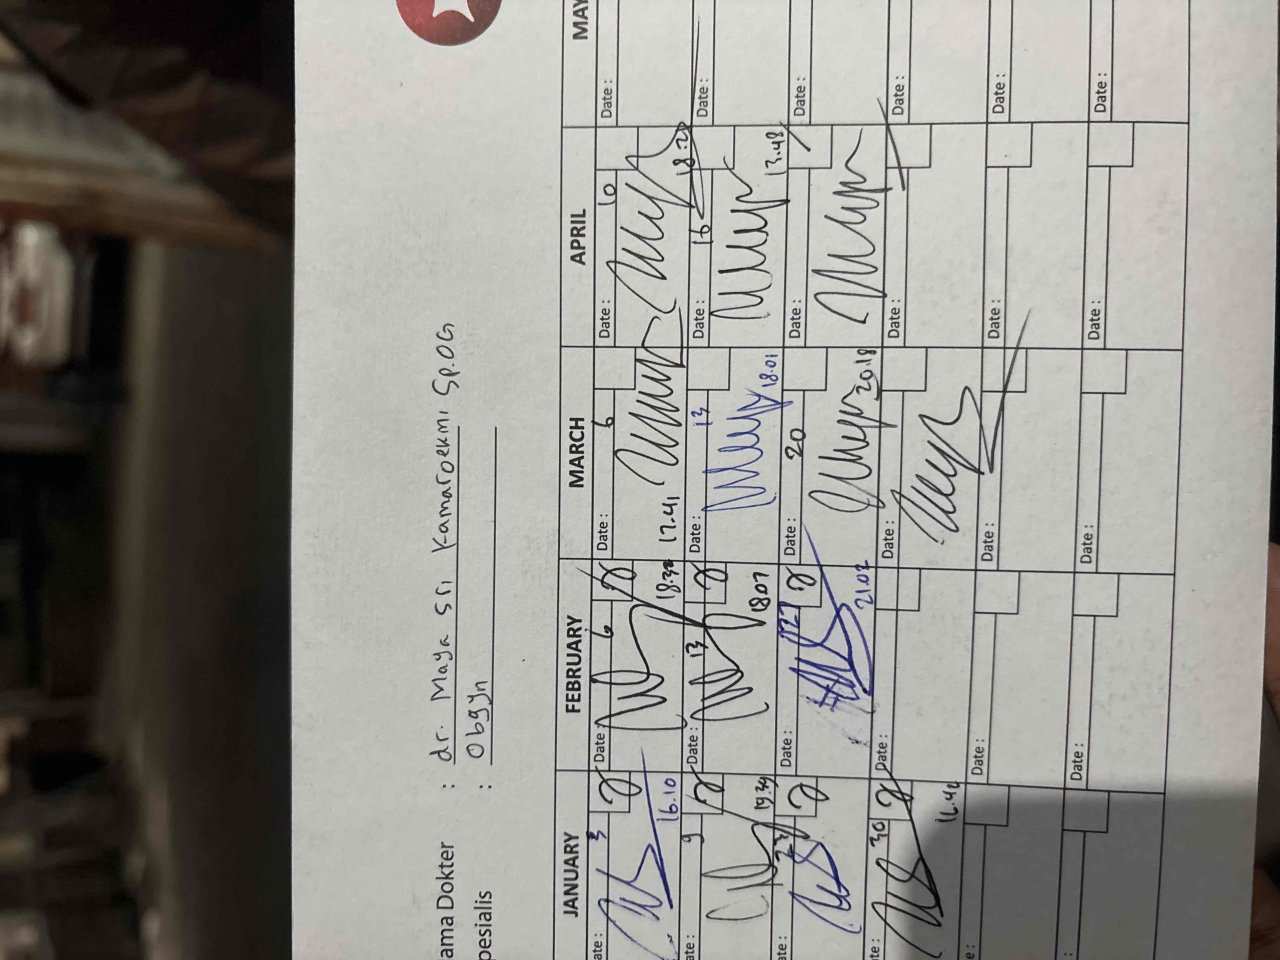 ama Dokter : dr. Maya Sri Kamaroekmi Sp.OG
pesialis : Obgyn
JANUARY FEBRUARY MARCH APRIL MAY
ate: 3 Date: 6 Date: 6 Date: 10 Date:
16.10 18.32 17.41 18.20
ate: 9 Date: 13 Date: 13 Date: 16 Date:
19.39 18.07 18.01 13.48
ate: 23 Date: 27 Date: 20 Date: Date:
21.02 20.18
ate: 30 Date: Date: Date: Date:
16.42
e: Date: Date: Date: Date:
: Date: Date: Date: Date: